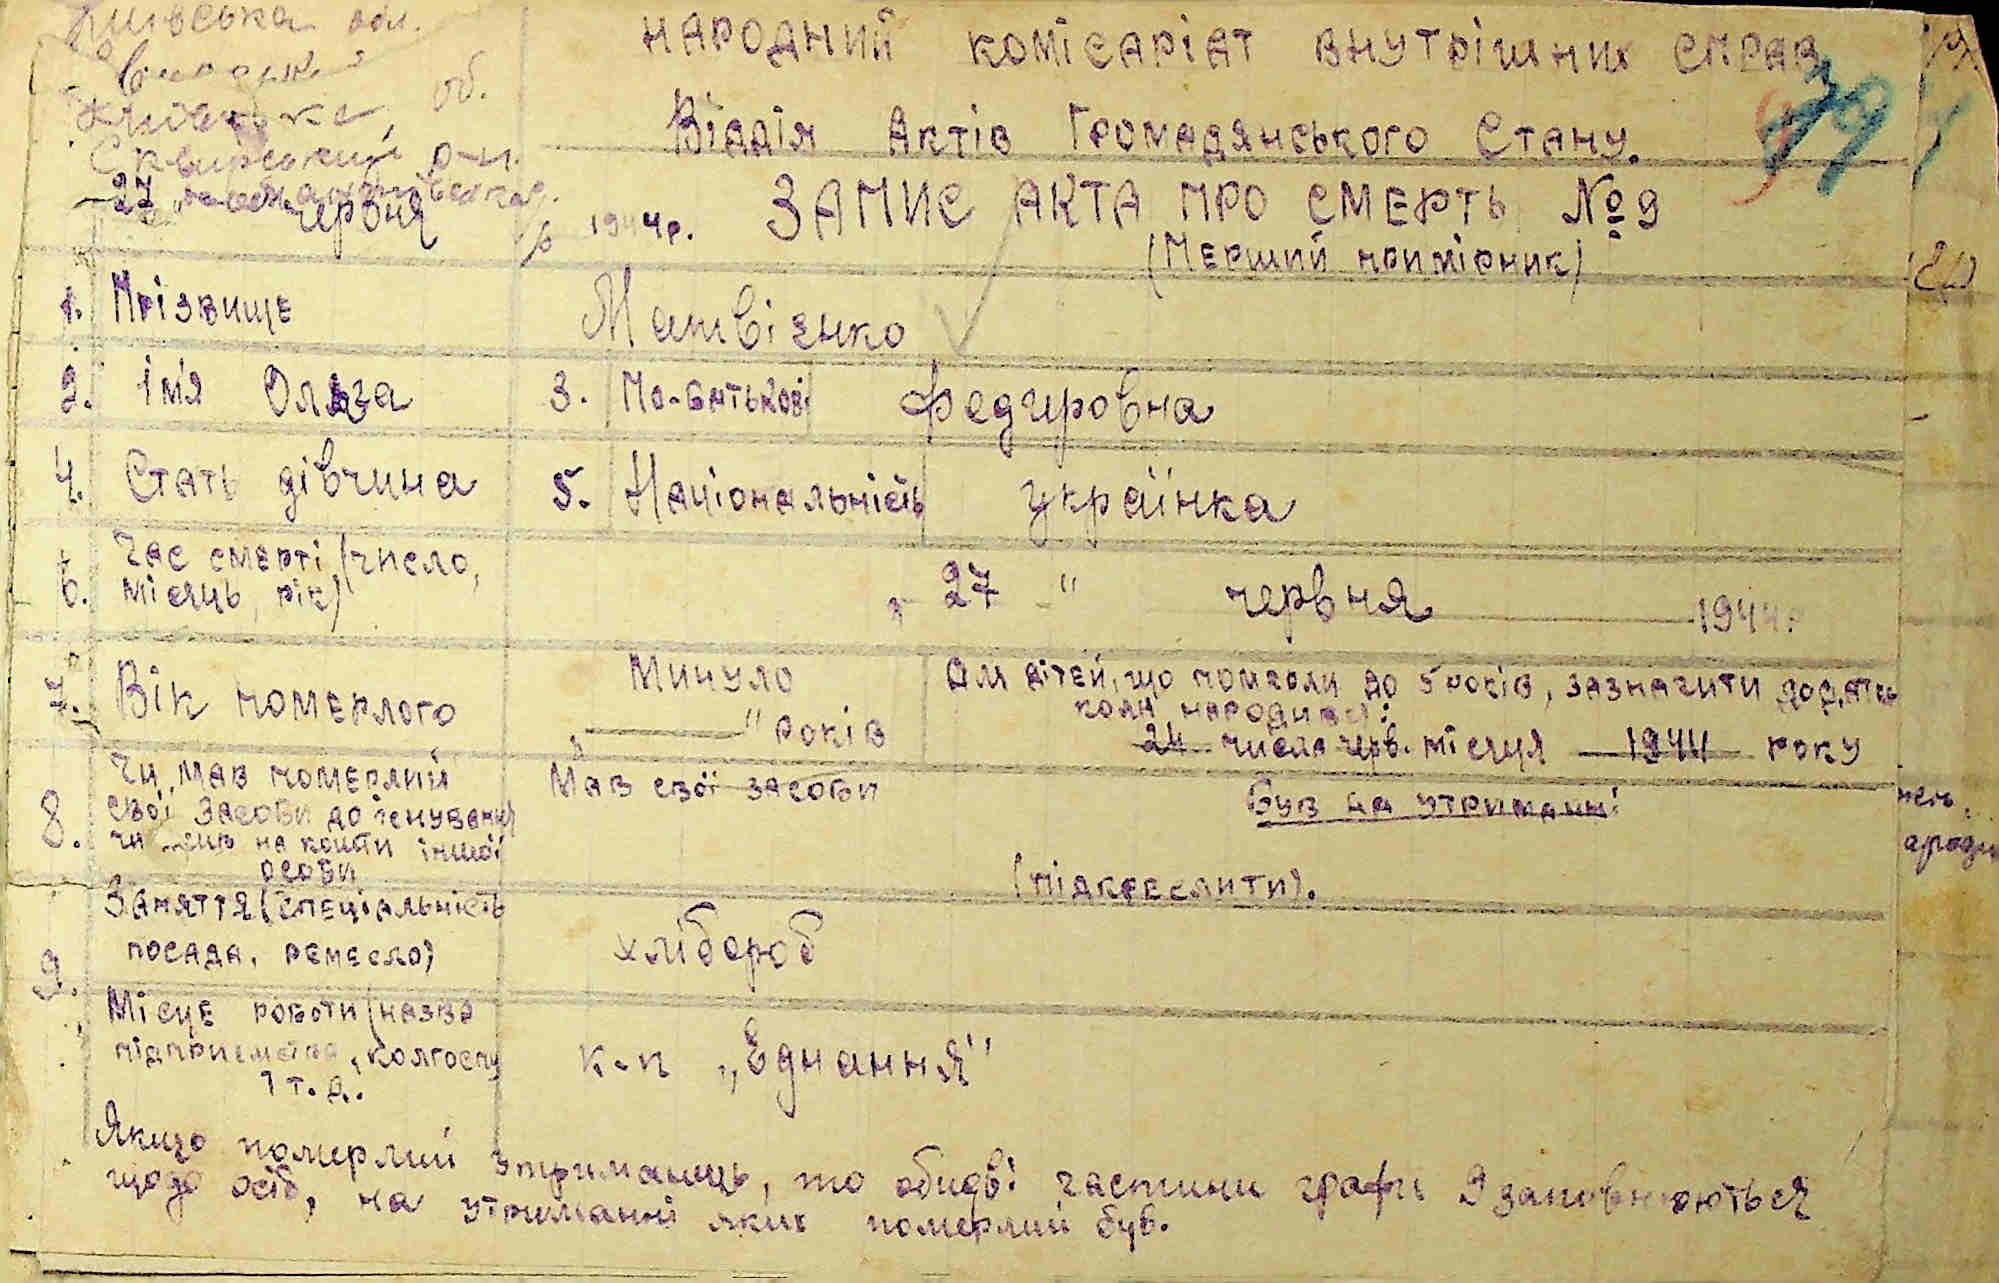 Київська обл.
об.
Сквирський р-н.
НАРОДНИЙ КОМІСАРІАТ ВНУТРІШНИХ СПРАВ
39
Відділ Актів Громадянського Стану.
27 червня 1944р. ЗАПИС АКТА ПРО СМЕРТЬ № 9
(ПЕРШИЙ ПРИМІРНИК)
1. Прізвище Матвієнко
2. Ім'я Ольга 3. По-батькові Федировна
4. Стать дівчина 5. Національність українка
6. Час смерті (число, місяць, рік) „27" червня 1944р.
7. Вік померлого
Минуло
„ " років
Для дітей, що померли до 5 років, зазначити додатк.
коли народився:
24 числа черв. місяця 1944 року
8. Чи мав померлий
свої засоби до існування
чи жив на кошти іншої
особи
Мав свої засоби
Був на утриманні
(підкреслити).
9. Заняття (спеціальність
посада, ремесло)
хлібороб
Місце роботи (назва
підприємства, колгоспу
і т. д.
к-п „Єднання"
Якщо померлий утриманець, то обидві частини графи 9 заповнюються
щодо осіб, на утриманні яких померлий був.